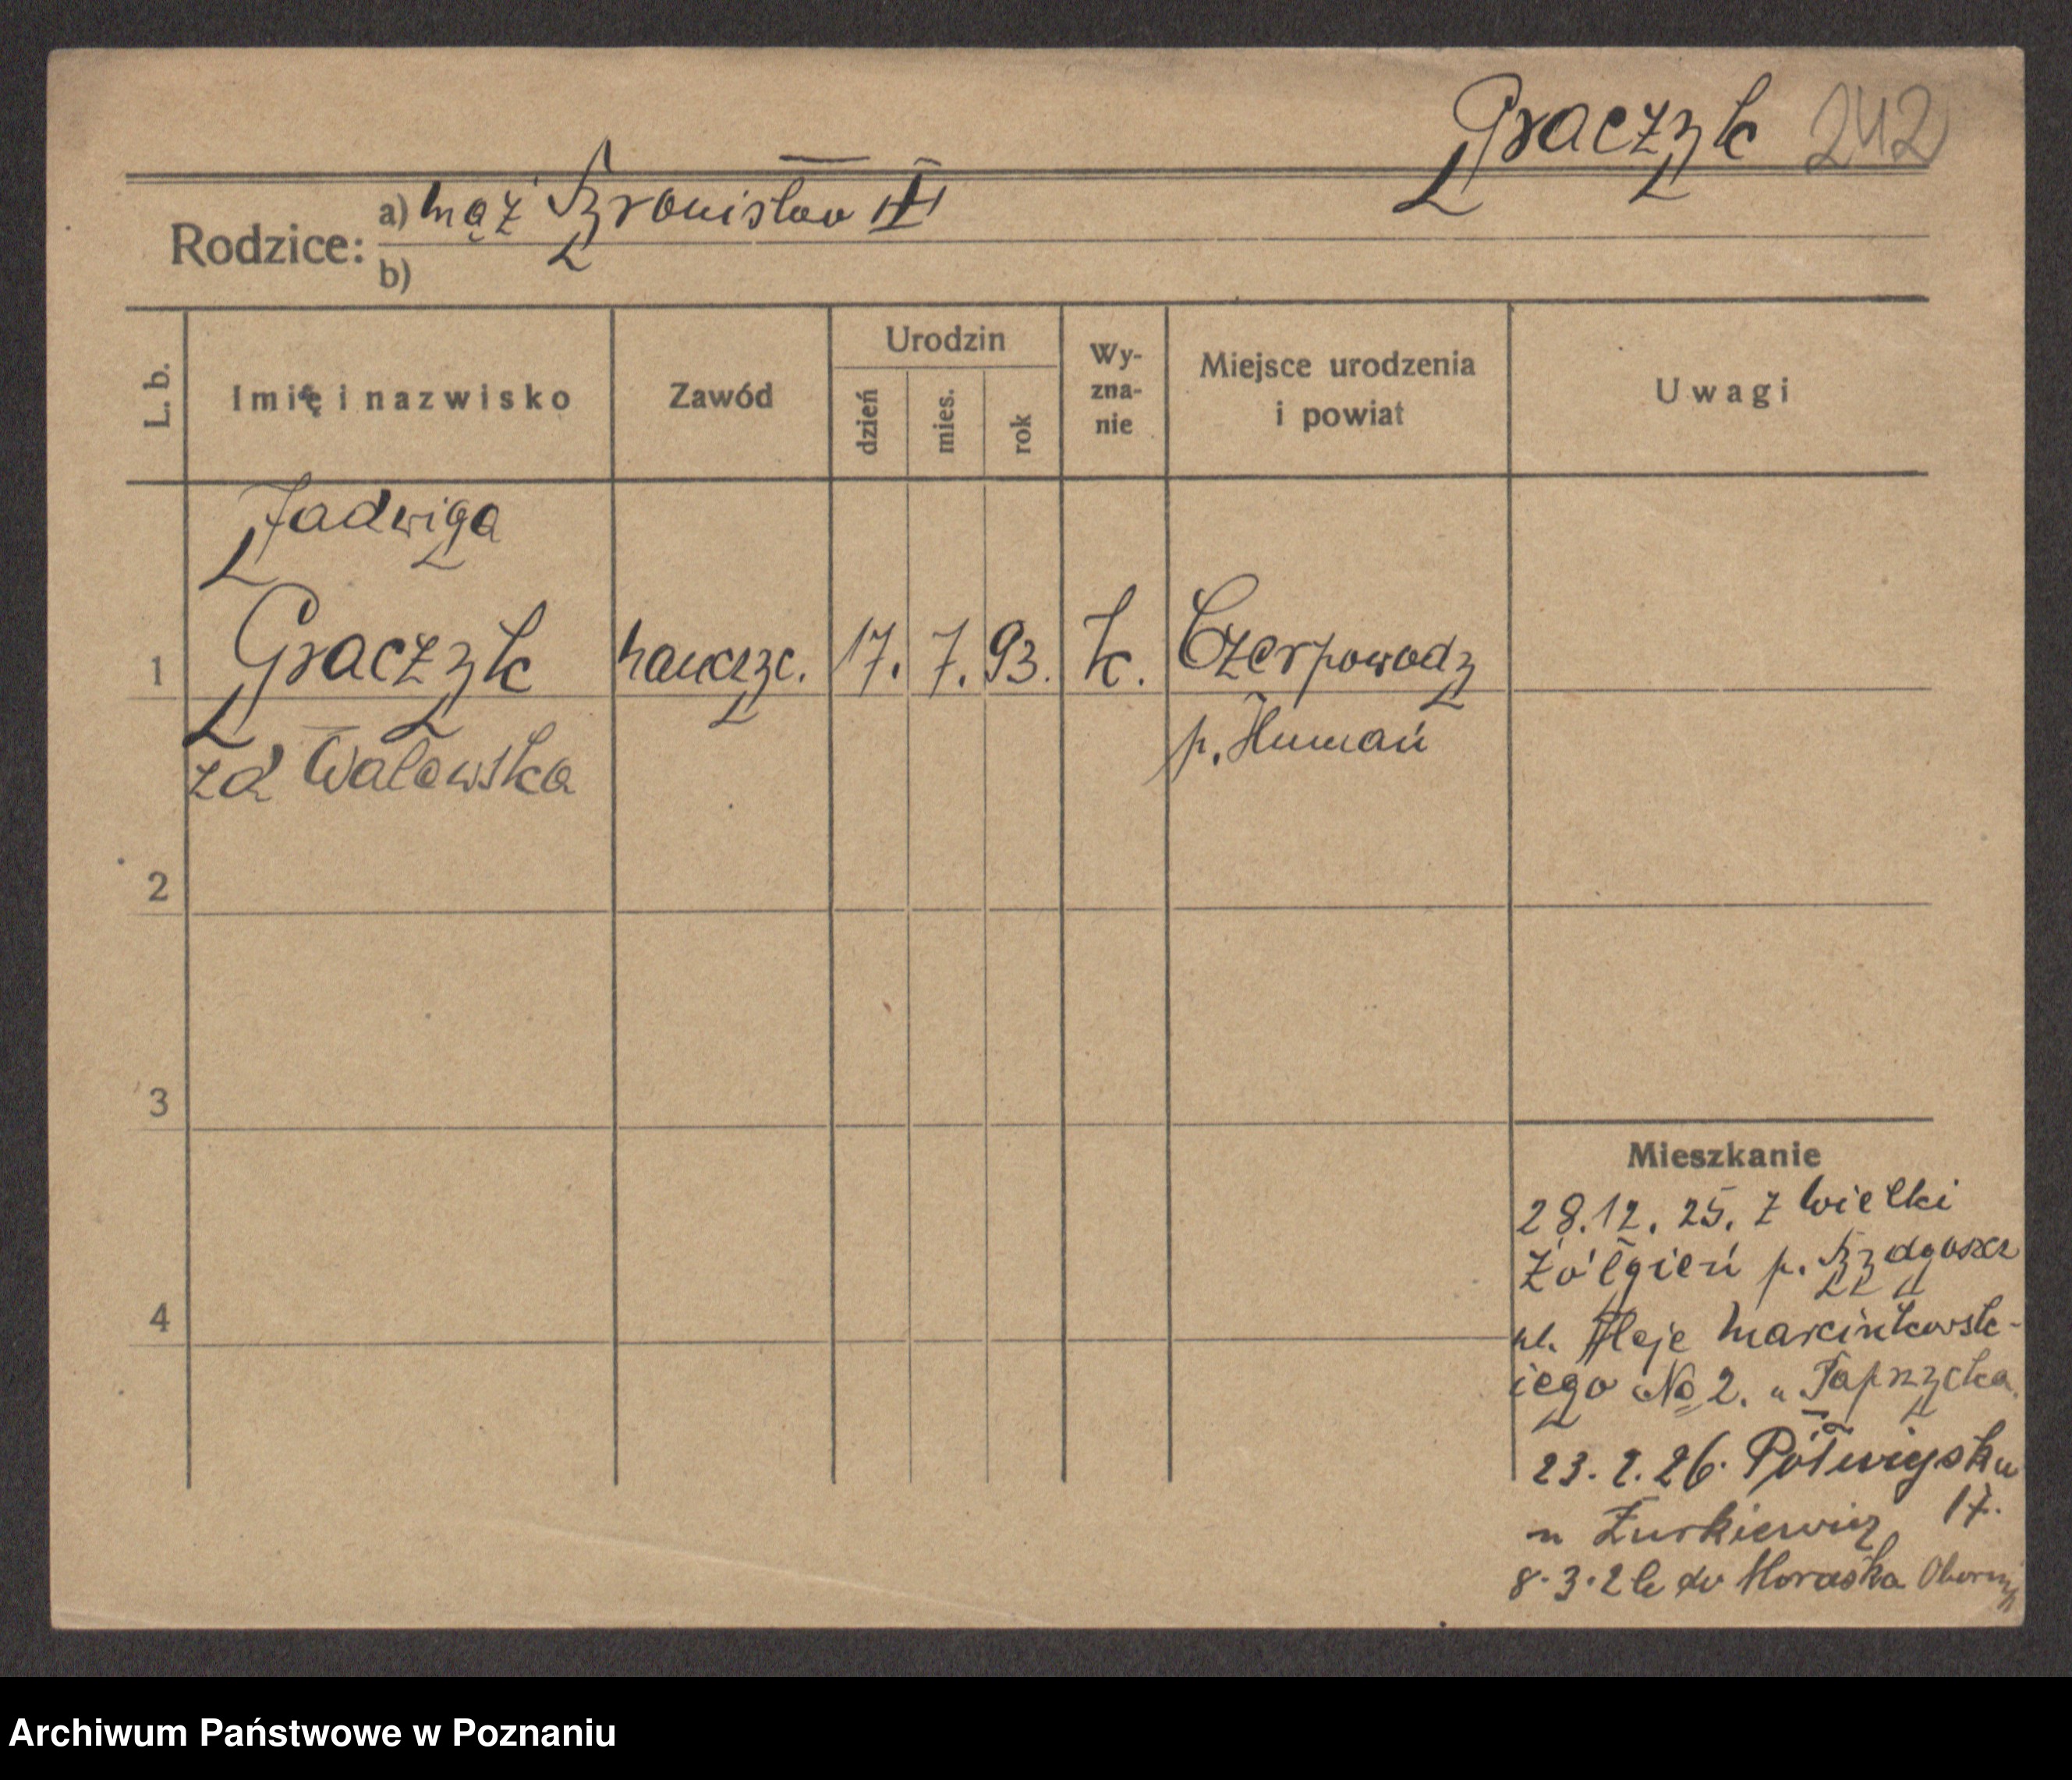 Graczyk 242
Rodzice:
a) mąż Bronisław III
b)
L. b.
Imię i nazwisko
Zawód
Urodzin
dzień
mies.
rok
Wy-
zna-
nie
Miejsce urodzenia
i powiat
Uwagi
Jadwiga
1 Graczyk nauczyc. 17. 7. 93. k. Czerpowody
zd Walewska p. Humań
2
3
4
Mieszkanie
28.12.25. z Wielki
Żółgień p. Bydgoszcz
ul. Aleje Marcinkowsk-
iego No 2. u
23.2.26. Półwiejska
17.
u Żurkiewicz
8.3.26 do Moraska Oborniki
Archiwum Państwowe w Poznaniu